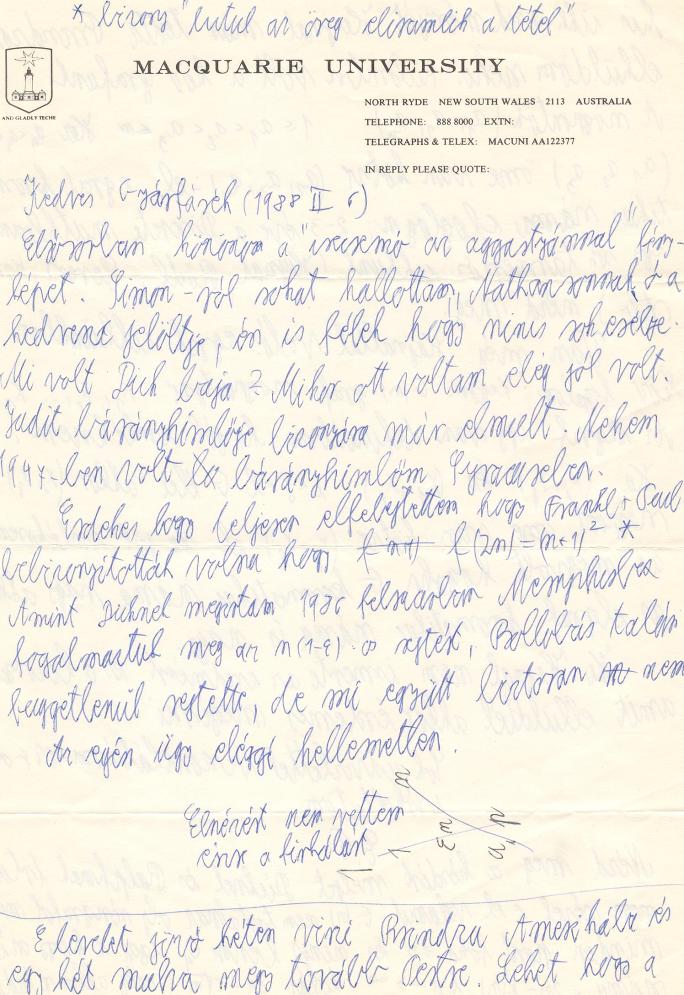 * bizony "lutul az öreg eliramlik a tétel"
MACQUARIE UNIVERSITY
AND GLADLY TECHE
NORTH RYDE NEW SOUTH WALES 2113 AUSTRALIA
TELEPHONE: 888 8000 EXTN:
TELEGRAPHS & TELEX: MACUNI AA122377
IN REPLY PLEASE QUOTE:
Kedves Gyárfásék (1988 II 6)
Elsősorban köszönöm a "csecsemő az aggastyánnal" fény-
képet. Simon-ról sokat hallottam, Nathansonnak ő a
kedvenc jelöltje, én is félek hogy nincs sok esélye.
Mi volt Dick baja? Mikor ott voltam elég jól volt.
Judit bárányhimlője bizonyára már elmult. Nekem
1947-ben volt bárányhimlőm Syracuseben.
Érdekes hogy teljesen elfelejtettem hogy Frankl + Paul
bebizonyították volna hogy f(2n) = (n+1)² *
Amint Dicknek megírtam 1986 Memphisben
fogalmaztuk meg az n(1-ε) os sejtést, Bollobás talán
függetlenül sejtette, de mi együtt biztosan nem
Az egész ügy eléggé kellemetlen.
Elnézést nem vettem
észre a firkálást
E levelet jövő héten viszi Amerikába és
egy hét mulva megy tovább Pestre. Lehet hogy a